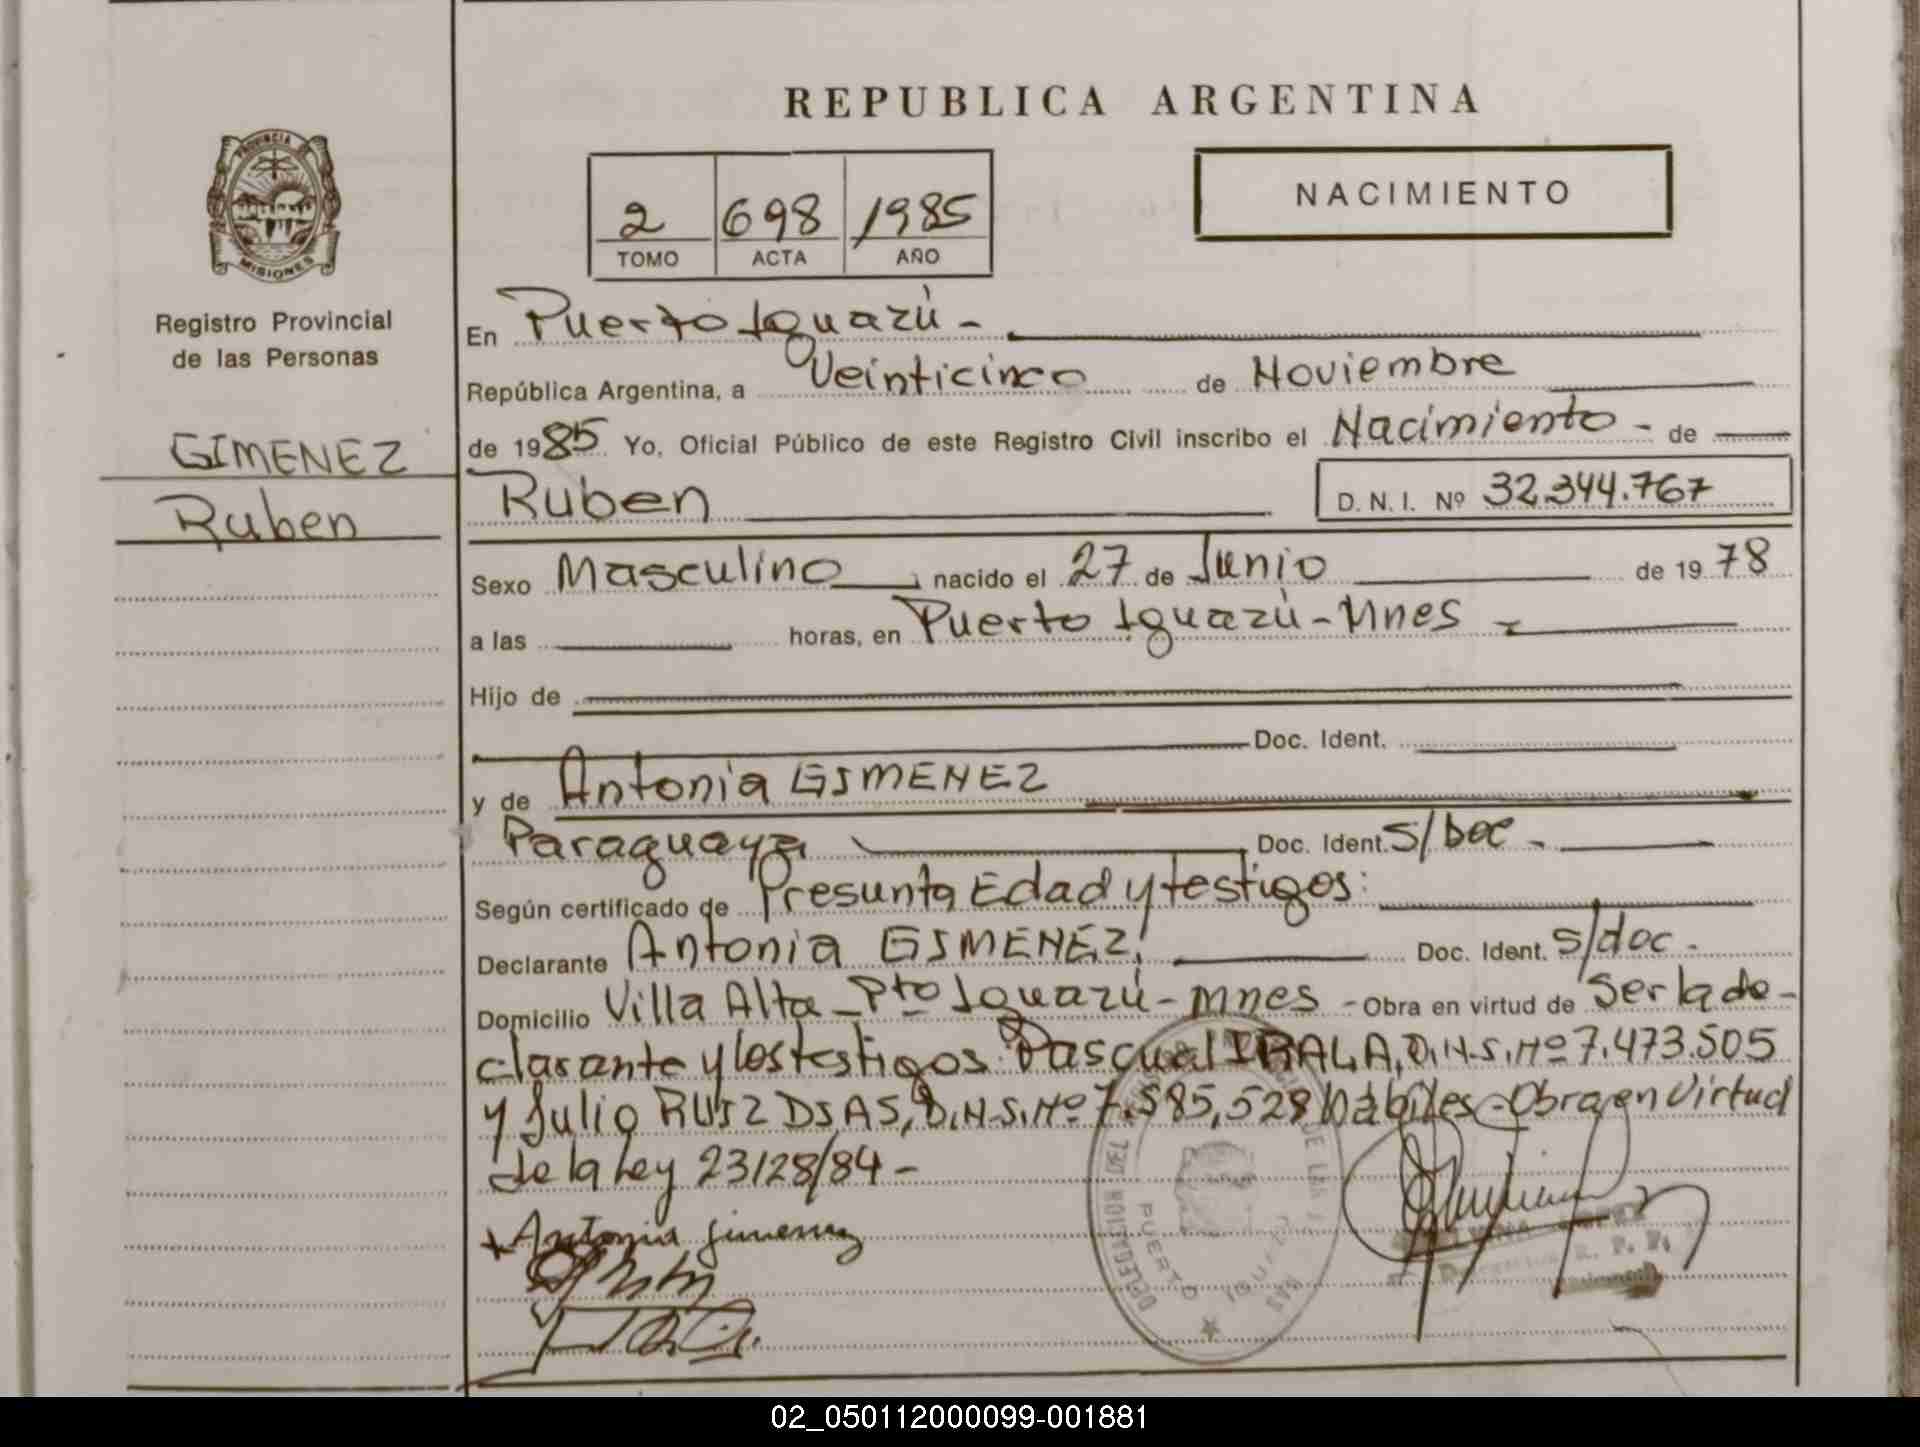 REPUBLICA ARGENTINA
PROVINCIA DE
MISIONES
Registro Provincial
de las Personas
GIMENEZ
Ruben
2 698 1985
TOMO ACTA AÑO
NACIMIENTO
En Puerto Iguazú -
República Argentina, a Veinticinco de Noviembre
de 1985 Yo, Oficial Público de este Registro Civil inscribo el Nacimiento - de
Ruben D. N. I. Nº 32.344.767
Sexo Masculino nacido el 27 de Junio de 1978
a las horas, en Puerto Iguazú - Mnes
Hijo de
Doc. Ident.
y de Antonia GIMENEZ
Paraguaya Doc. Ident. S/Doc -
Según certificado de Presunta Edad y testigos:
Declarante Antonia GIMENEZ, Doc. Ident. S/doc.
Domicilio Villa Alta - Pto Iguazú - Mnes - Obra en virtud de Ser la de-
clarante y los testigos: Pascual IRALA, D.N.I. Nº 7.473.505
y Julio RUIZ DIAS, D.N.I. Nº 7.585.528 hábiles - Obra en Virtud
de la Ley 23128/84 -
Antonia Gimenez
DELEGACION DEL
DE LAS
PUERTO IGUAZU
R. P. P.
02_050112000099-001881